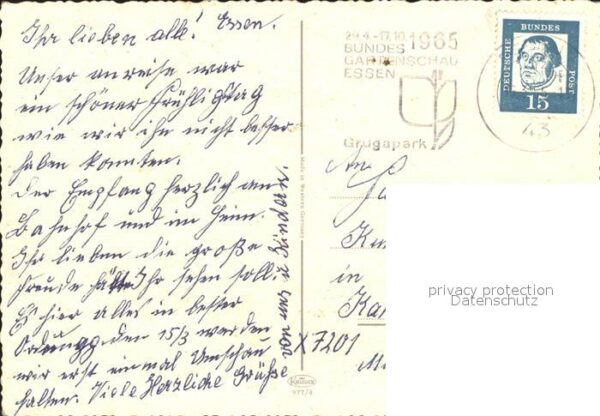 Ihr lieben alle! Essen.
Unser anreise war
ein schöner Frühligstag
wie wir ihn nicht besser
haben konnten.
Der Empfang herzlich am
Bahnhof und im Heim.
Ihr lieben die große
Freude hätt Ihr sehen soll.
Es hier alles in bester
Ordnung den 15/3 werden
wir erst einmal Umschau
halten. Viele Herzliche Grüße
von uns u Kindern.
29.4.-17.10.1965
BUNDES
GARTENSCHAU
ESSEN
Grugapark
DEUTSCHE BUNDESPOST
15
43
Made in Western Germany
An
in
Ka
privacy protection
Datenschutz
X7201
Krüger
977/4